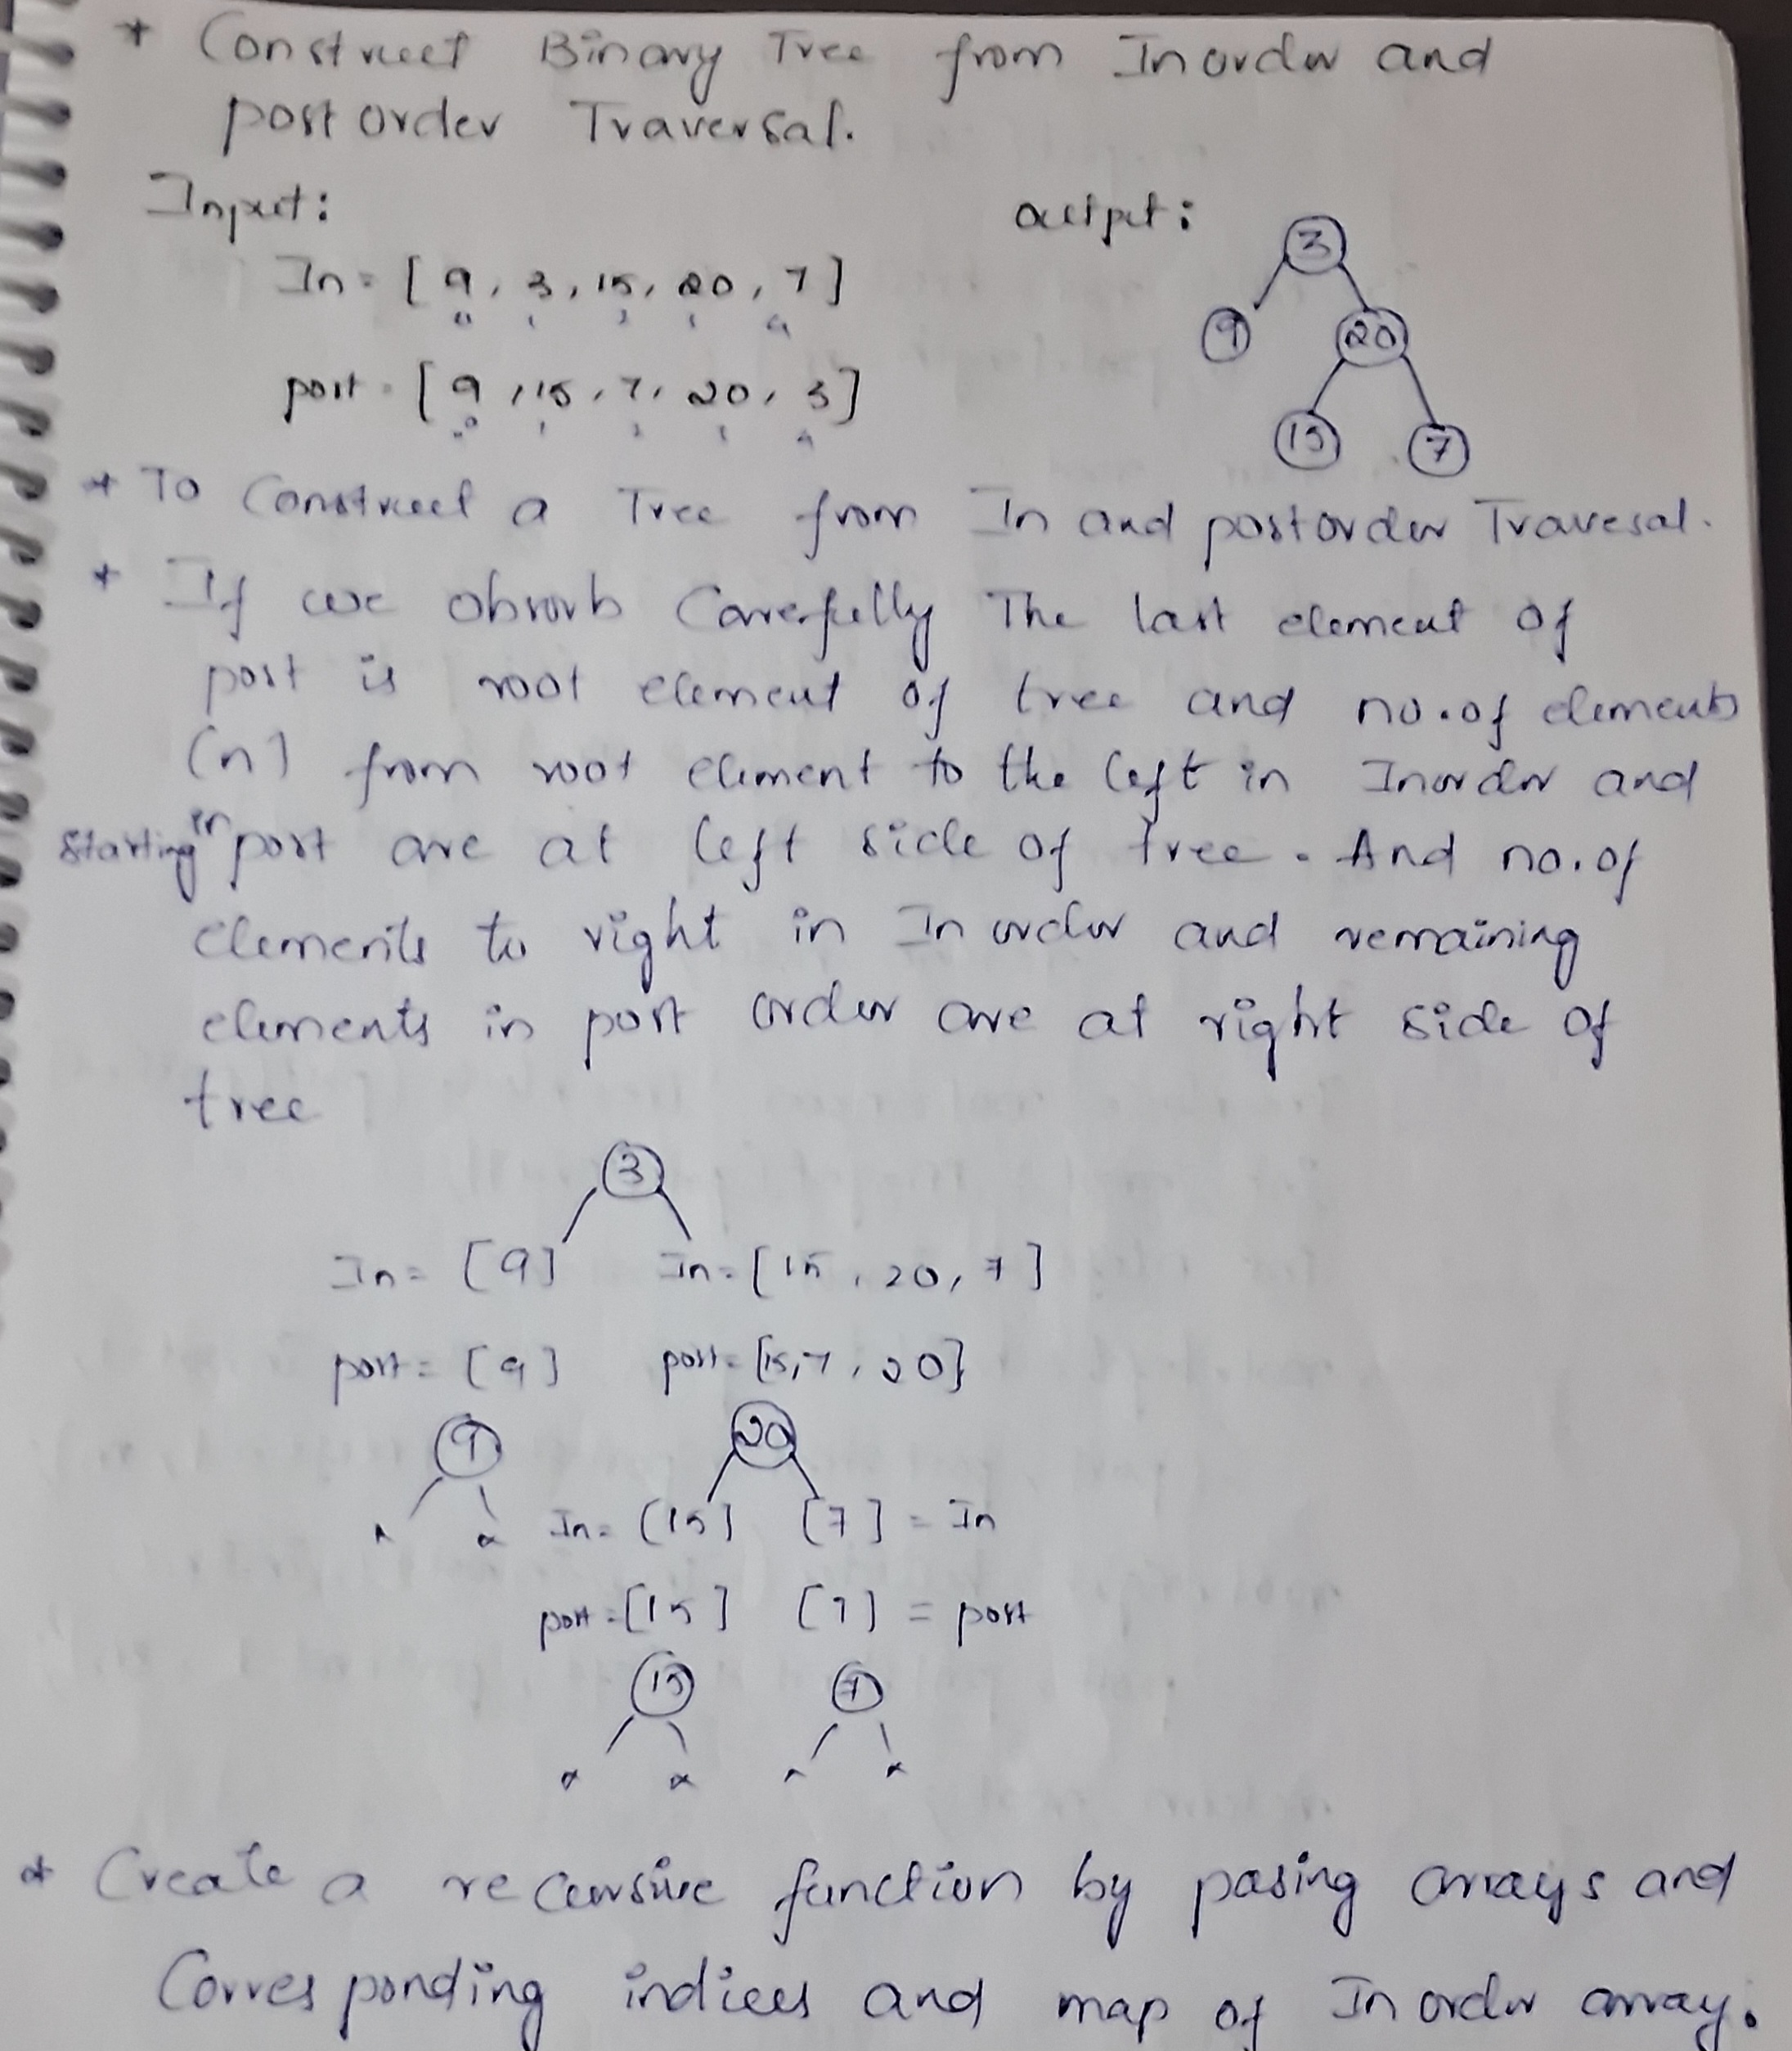 * Construct Binary Tree from Inorder and
post order Traversal.
Input:
output:
In = [9, 3, 15, 20, 7]
post = [9, 15, 7, 20, 3]
3
9 20
15 7
* To Construct a Tree from In and postorder Travesal.
* If we obsorb Carefully The last element of
post is root element of tree and no. of elements
(n) from root element to the left in Inorder and
starting in post are at left side of tree. And no. of
elements to right in In order and remaining
elements in post order are at right side of
tree
3
In = [9] In = [15, 20, 7]
post = [9] post = [15, 7, 20]
9 20
x x In = [15] [7] = In
post = [15] [7] = post
15 7
x x x x
* Create a recursive function by pasing arrays and
Corresponding indices and map of In order array.